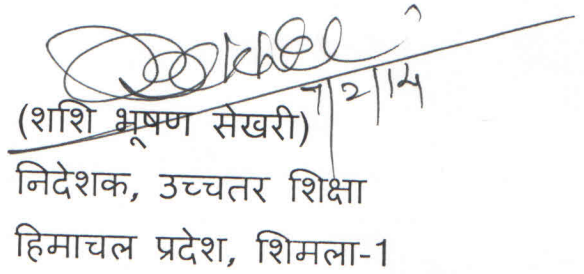 7/2/14
(शशि भूषण सेखरी)
निदेशक, उच्चतर शिक्षा
हिमाचल प्रदेश, शिमला-1